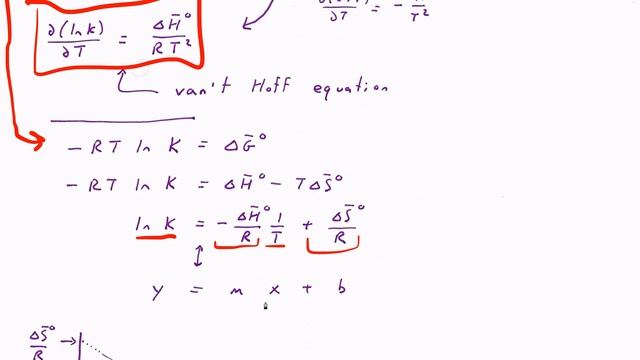 ∂(ln K)/∂T = ΔH̄°/RT²
van't Hoff equation
-RT ln K = ΔḠ°
-RT ln K = ΔH̄° - TΔS̄°
ln K = -ΔH̄°/R 1/T + ΔS̄°/R
y = m x + b
ΔS̄°/R →